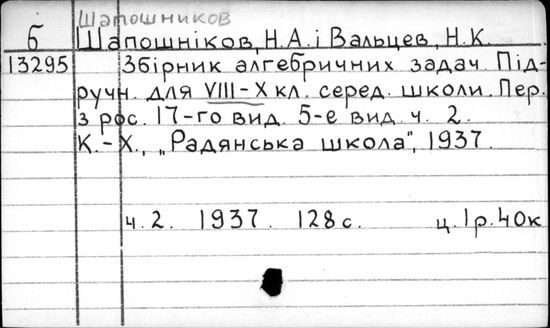 Шапошников
Б Шапошніков, Н.А. і Вальцев, Н.К.
13295 Збірник алгебричних задач. Під-
ручн. для VIII-X кл. серед. школи. Пер.
з рос. 17-го вид. 5-е вид. ч. 2.
К.-Х., „Радянська школа", 1937.
ч. 2. 1937. 128 с. ц. 1 р. 40 к